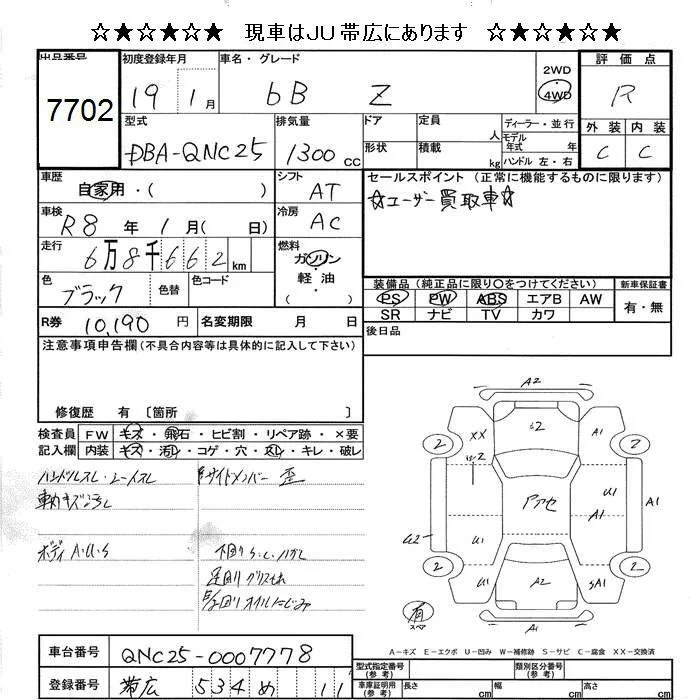 ☆★☆★☆★ 現車はJU帯広にあります ☆★☆★☆★
出品番号
7702
初度登録年月
19 1月
車名・グレード
bB Z
2WD
4WD
評価点
R
型式
DBA-QNC25
排気量
1300cc
ドア
定員 人
ディーラー・並行
モデル年式 年
形状
積載 kg
ハンドル 左・右
外装 内装
C C
車歴
自家用・( )
シフト
AT
セールスポイント (正常に機能するものに限ります)
☆ユーザー買取車☆
車検
R8年 1月( 日)
冷房
AC
走行
6万8千662km
燃料
ガソリン
・
軽油
( )
色
ブラック
色替
色コード
装備品 (純正品に限り○をつけてください)
新車保証書
PS PW ABS エアB AW
有・無
SR ナビ TV カワ
R券 10,190円
名変期限 月 日
後日品
注意事項申告欄(不具合内容等は具体的に記入して下さい)
修復歴 有 〔箇所 〕
検査員
記入欄
FW キズ・飛石・ヒビ割・リペア跡・×要
内装 キズ・汚レ・コゲ・穴・スレ・キレ・破レ
ハンドルスレ・シートスレ
ボディA・U・S
サイドメンバー歪
下回りS・C・ハカレ
A2
2 XX 62 A1 2
U1
A1
A1
アアセ
U2
U1
2 U1 A2 SA1 2
A1
有
スペア
A-キズ E-エクボ U-凹み W-補修跡 S-サビ C-腐食 XX-交換済
車台番号
QNC25-0007778
登録番号
帯広 534 め 11
型式指定番号
(参考)
類別区分番号
(参考)
車庫証明用
(参考)
長さ cm
幅 cm
高さ cm